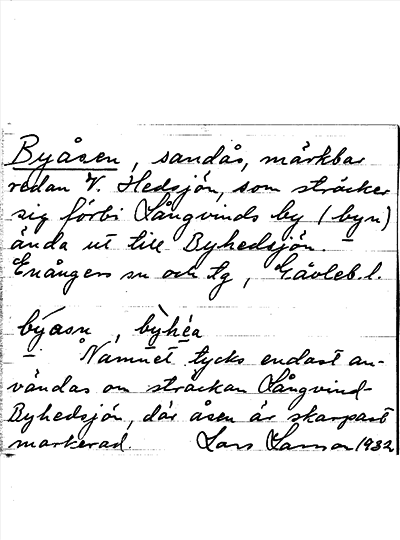 Byåsen, sandås, märkbar
redan V. Hedsjön, som sträcker
sig förbi Långvinds by (byn)
ända ut till Byhedsjön.
Enångers sn och tg, Gävleb. l.
by̌asn, by̌héa
Namnet tycks endast an-
vändas om sträckan Långvind-
Byhedsjön, där åsen är skarpast
markerad. Lars Larson 1932